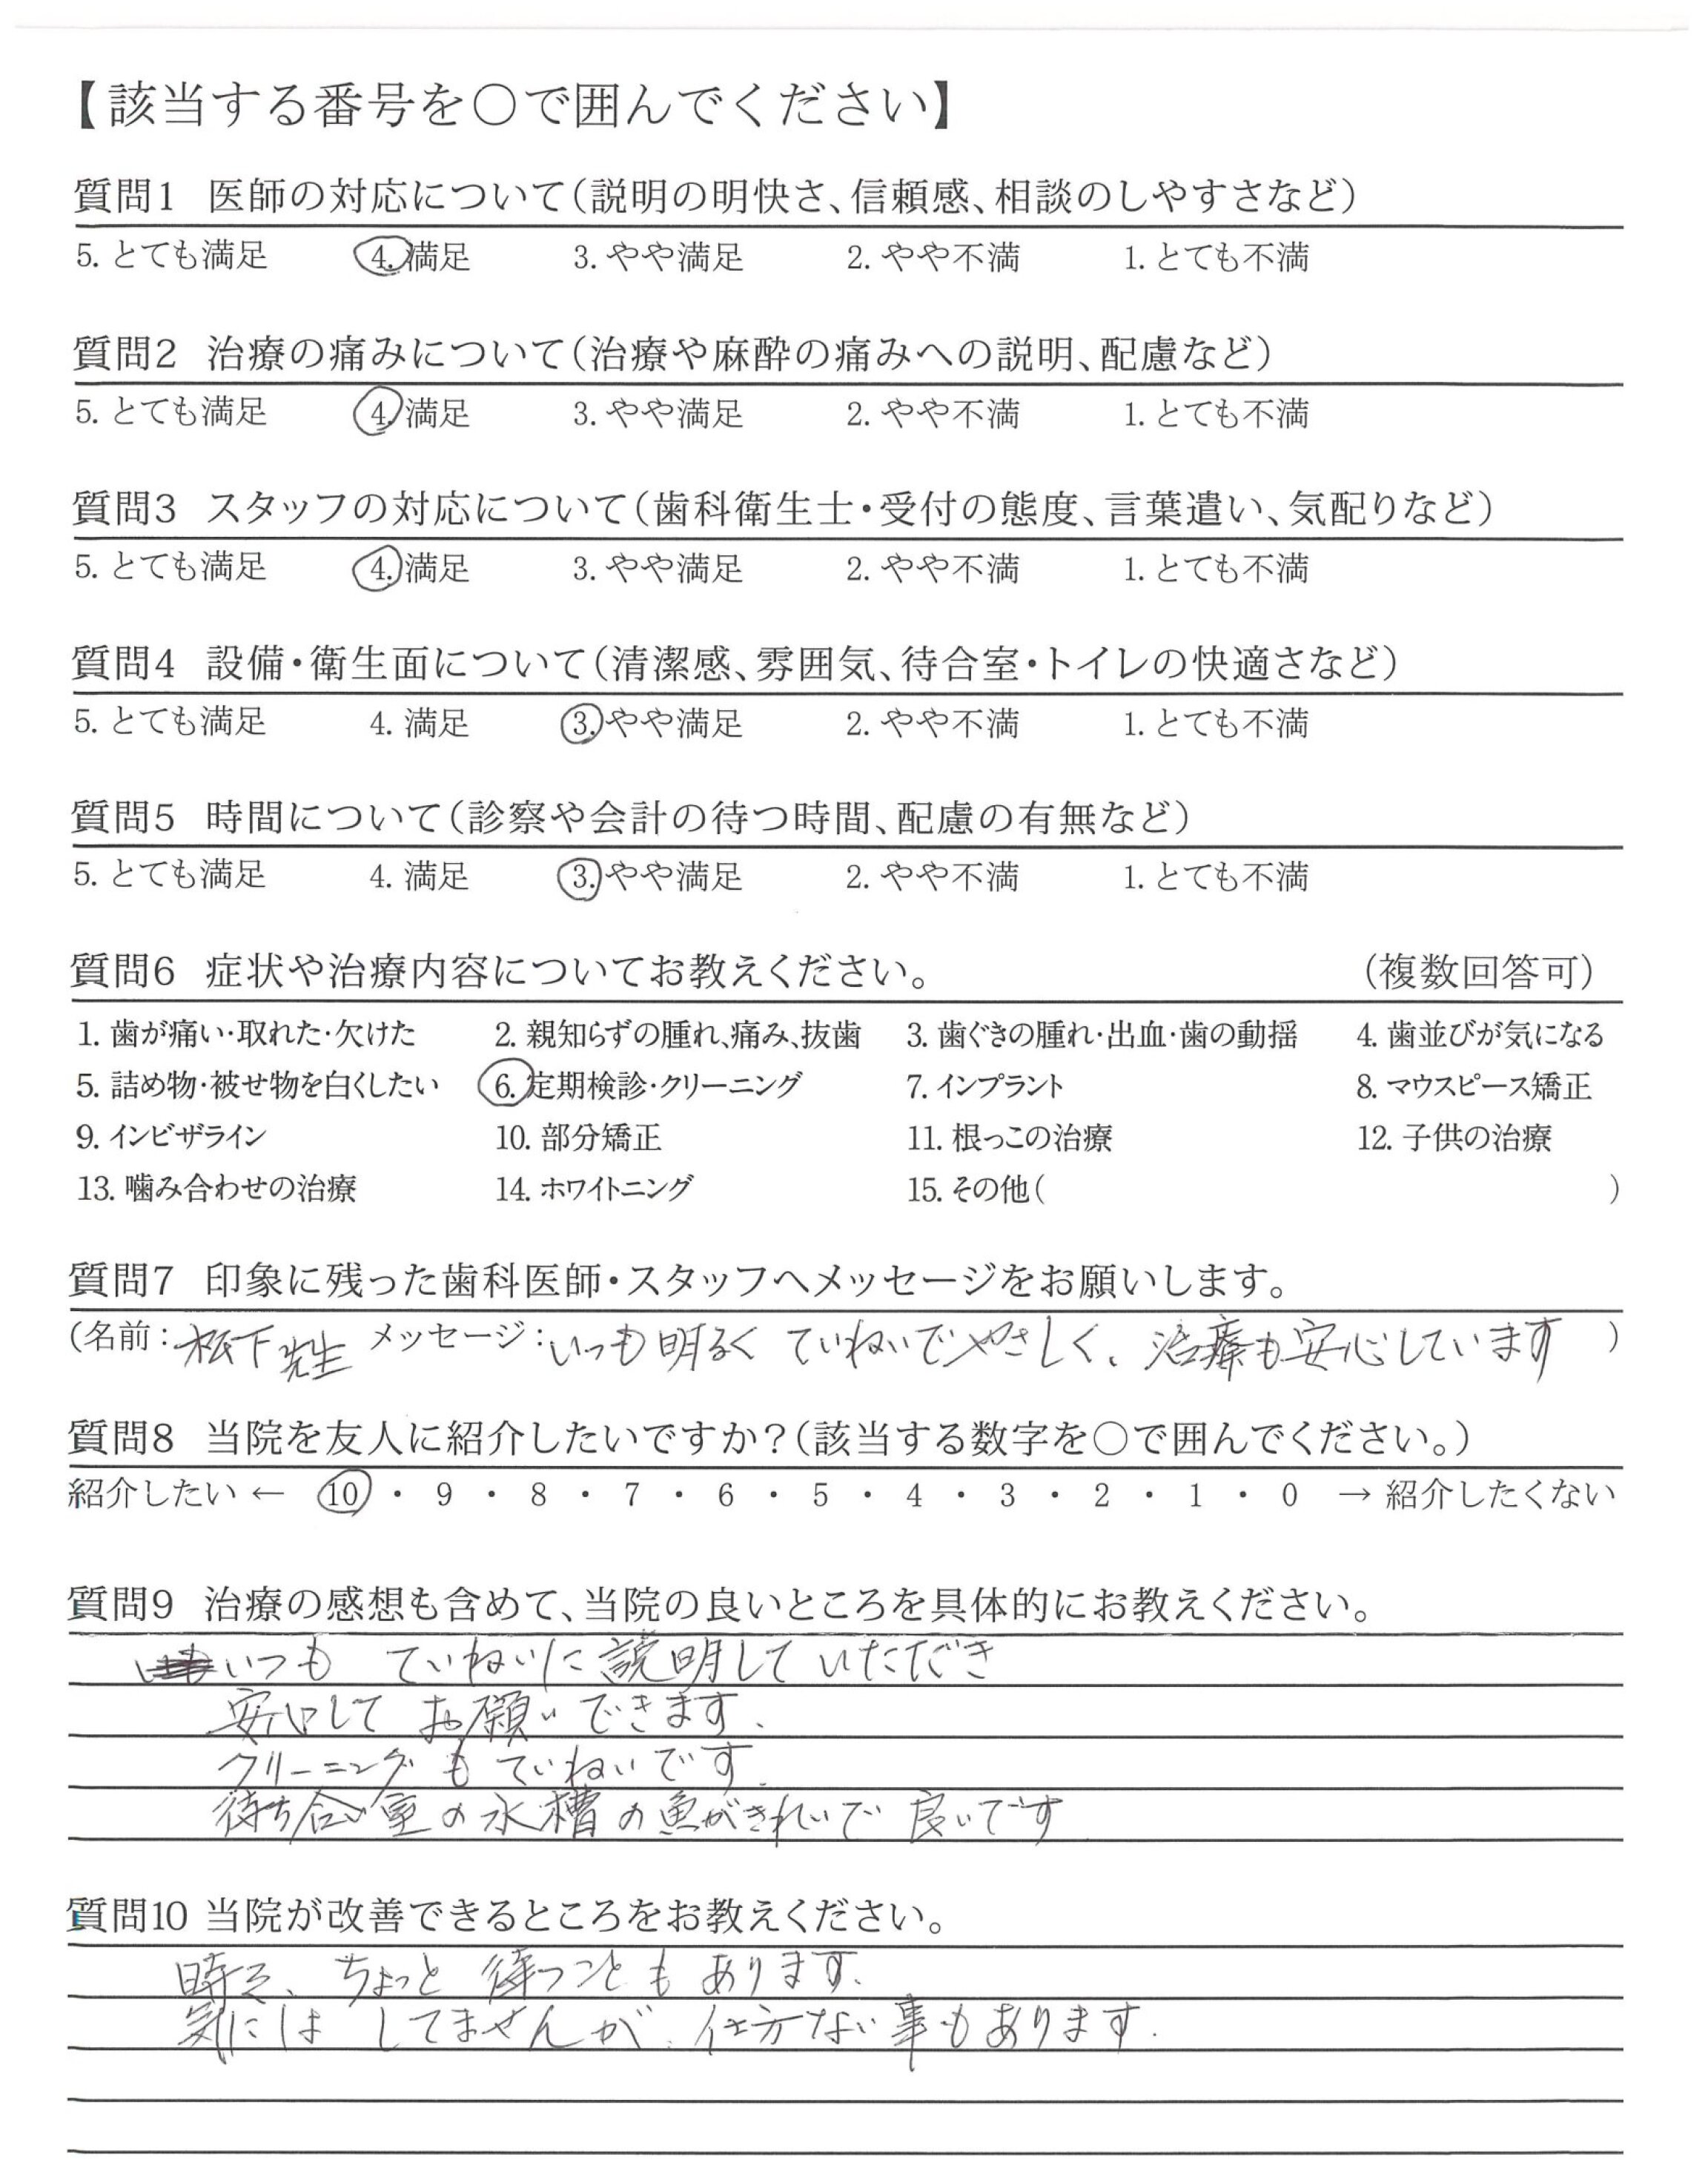 【該当する番号を〇で囲んでください】
質問1 医師の対応について(説明の明快さ、信頼感、相談のしやすさなど)
5. とても満足 4. 満足 3. やや満足 2. やや不満 1. とても不満
質問2 治療の痛みについて(治療や麻酔の痛みへの説明、配慮など)
5. とても満足 4. 満足 3. やや満足 2. やや不満 1. とても不満
質問3 スタッフの対応について(歯科衛生士・受付の態度、言葉遣い、気配りなど)
5. とても満足 4. 満足 3. やや満足 2. やや不満 1. とても不満
質問4 設備・衛生面について(清潔感、雰囲気、待合室・トイレの快適さなど)
5. とても満足 4. 満足 3. やや満足 2. やや不満 1. とても不満
質問5 時間について(診察や会計の待つ時間、配慮の有無など)
5. とても満足 4. 満足 3. やや満足 2. やや不満 1. とても不満
質問6 症状や治療内容についてお教えください。 (複数回答可)
1. 歯が痛い・取れた・欠けた 2. 親知らずの腫れ、痛み、抜歯 3. 歯ぐきの腫れ・出血・歯の動揺 4. 歯並びが気になる
5. 詰め物・被せ物を白くしたい 6. 定期検診・クリーニング 7. インプラント 8. マウスピース矯正
9. インビザライン 10. 部分矯正 11. 根っこの治療 12. 子供の治療
13. 噛み合わせの治療 14. ホワイトニング 15. その他( )
質問7 印象に残った歯科医師・スタッフへメッセージをお願いします。
(名前:松下先生 メッセージ:いつも明るく ていねいでやさしく、治療も安心しています )
質問8 当院を友人に紹介したいですか?(該当する数字を〇で囲んでください。)
紹介したい ← 10 ・ 9 ・ 8 ・ 7 ・ 6 ・ 5 ・ 4 ・ 3 ・ 2 ・ 1 ・ 0 → 紹介したくない
質問9 治療の感想も含めて、当院の良いところを具体的にお教えください。
いつも ていねいに説明していただき
安心して お願いできます。
クリーニングもていねいです。
待ち合い室の水槽の魚がきれいで 良いです
質問10 当院が改善できるところをお教えください。
時々、ちょっと 待つこともあります。
気には してませんが、仕方ない事もあります.